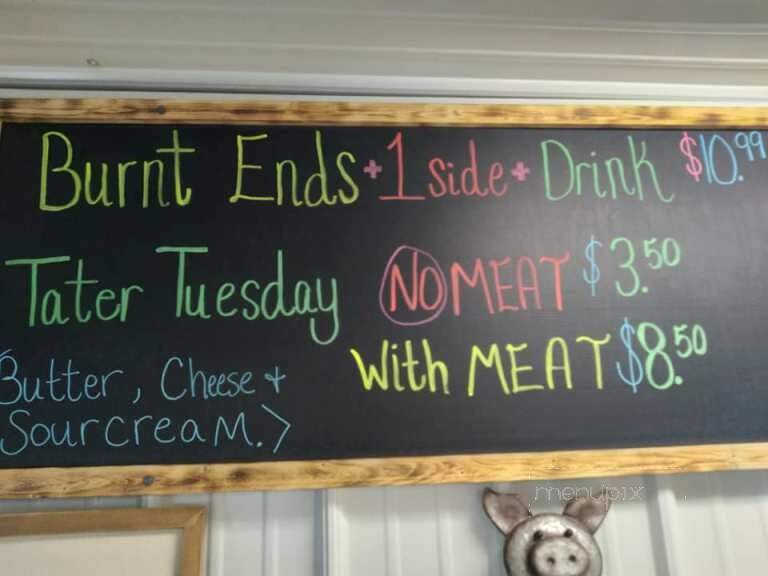 Burnt Ends + 1 side + Drink $10.99
Tater Tuesday NO MEAT $3.50
With MEAT $8.50
(Butter, Cheese +
Sourcream.)
menupix